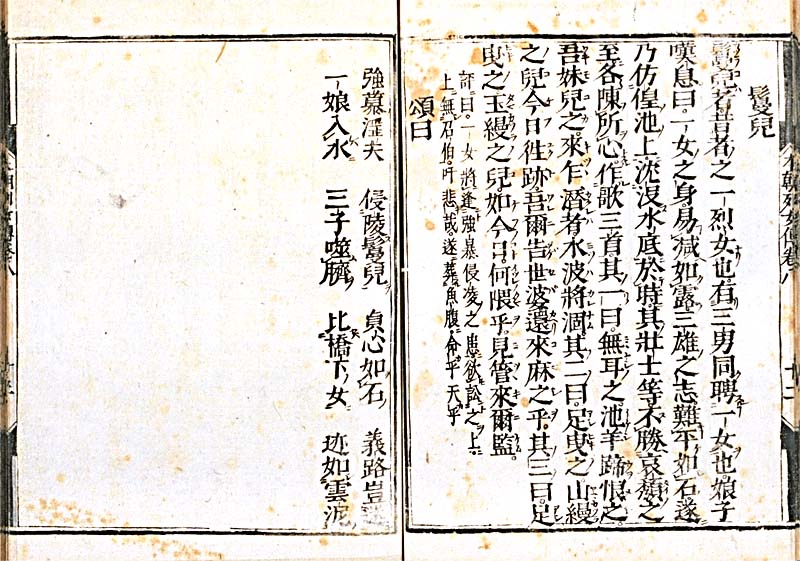 鬘兒
鬘兒者昔者之一烈女也。有三男同聘一女也。娘子
嘆息曰。一女之身易滅如露。三雄之志難平如石。遂
乃仿偟池上沈沒水底。於時其壯士等不勝哀頽之
至。各陳所心作歌三首。其一曰。無耳之池羊蹄恨之
吾妹兒之。來乍潛者水波將涸。其二曰。足曳之山縵
之兒今日徃跡吾爾告世波還來麻之乎。其三曰。足
曳之玉縵之兒。如今日。何隈乎。見管來爾監。
評曰。一女將逢強暴侵凌之患欲訟之上。
上無召伯。吁悲哉。遂葬魚腹。命乎天乎
頌曰
強暴滛夫 侵陵鬘兒 貞心如石 義路豈迷
一娘入水 三子噬臍 比橋下女 迹如雲泥